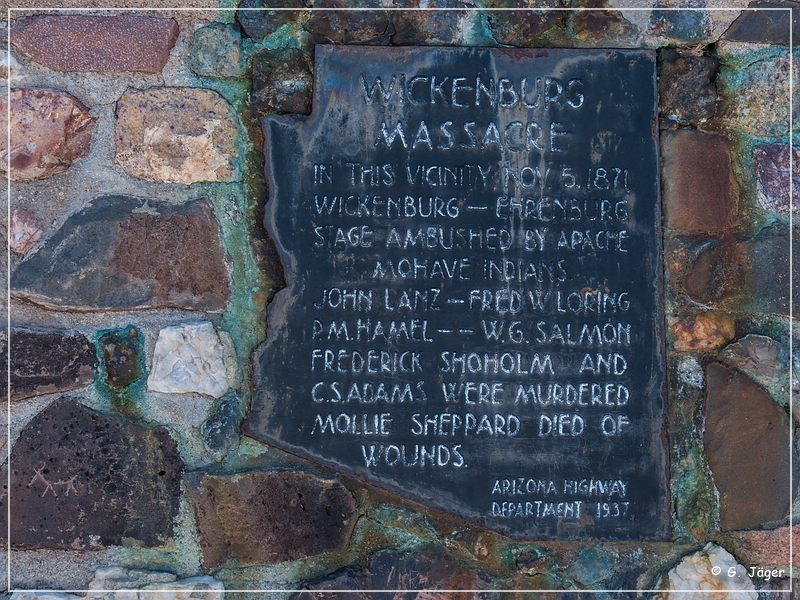 WICKENBURG
MASSACRE
IN THIS VICINITY NOV 5, 1871
WICKENBURG — EHRENBURG
STAGE AMBUSHED BY APACHE
MOHAVE INDIANS.
JOHN LANZ — FRED W. LORING
P.M. HAMEL — — W.G. SALMON
FREDERICK SHOHOLM AND
C.S. ADAMS WERE MURDERED
MOLLIE SHEPPARD DIED OF
WOUNDS.
ARIZONA HIGHWAY
DEPARTMENT 1937
© G. Jäger